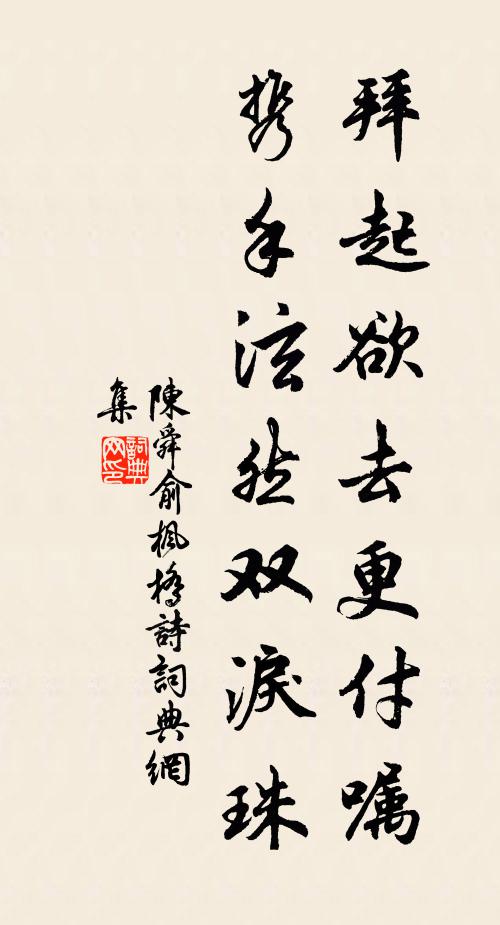 拜起欲去更付嘱
携手泫然双淚珠
陳舜俞楓橋詩詞典網
集
詞典网印